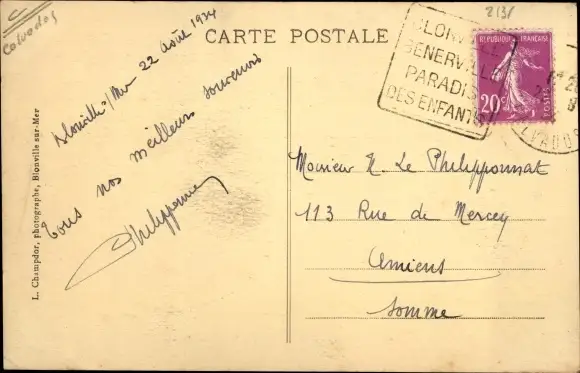 Calvados
2131
CARTE POSTALE
BLONVILLE
BENERVILLE
PARADIS
DES ENFANTS
REPUBLIQUE FRANÇAISE
20c
POSTES
CALVADOS
Blonville s/Mer 22 Août 1934
Tous nos meilleurs souvenirs
Monsieur H. Le Philipponnat
113 Rue de Mercey
Amiens
Somme
L. Champdor, photographe, Blonville-sur-Mer